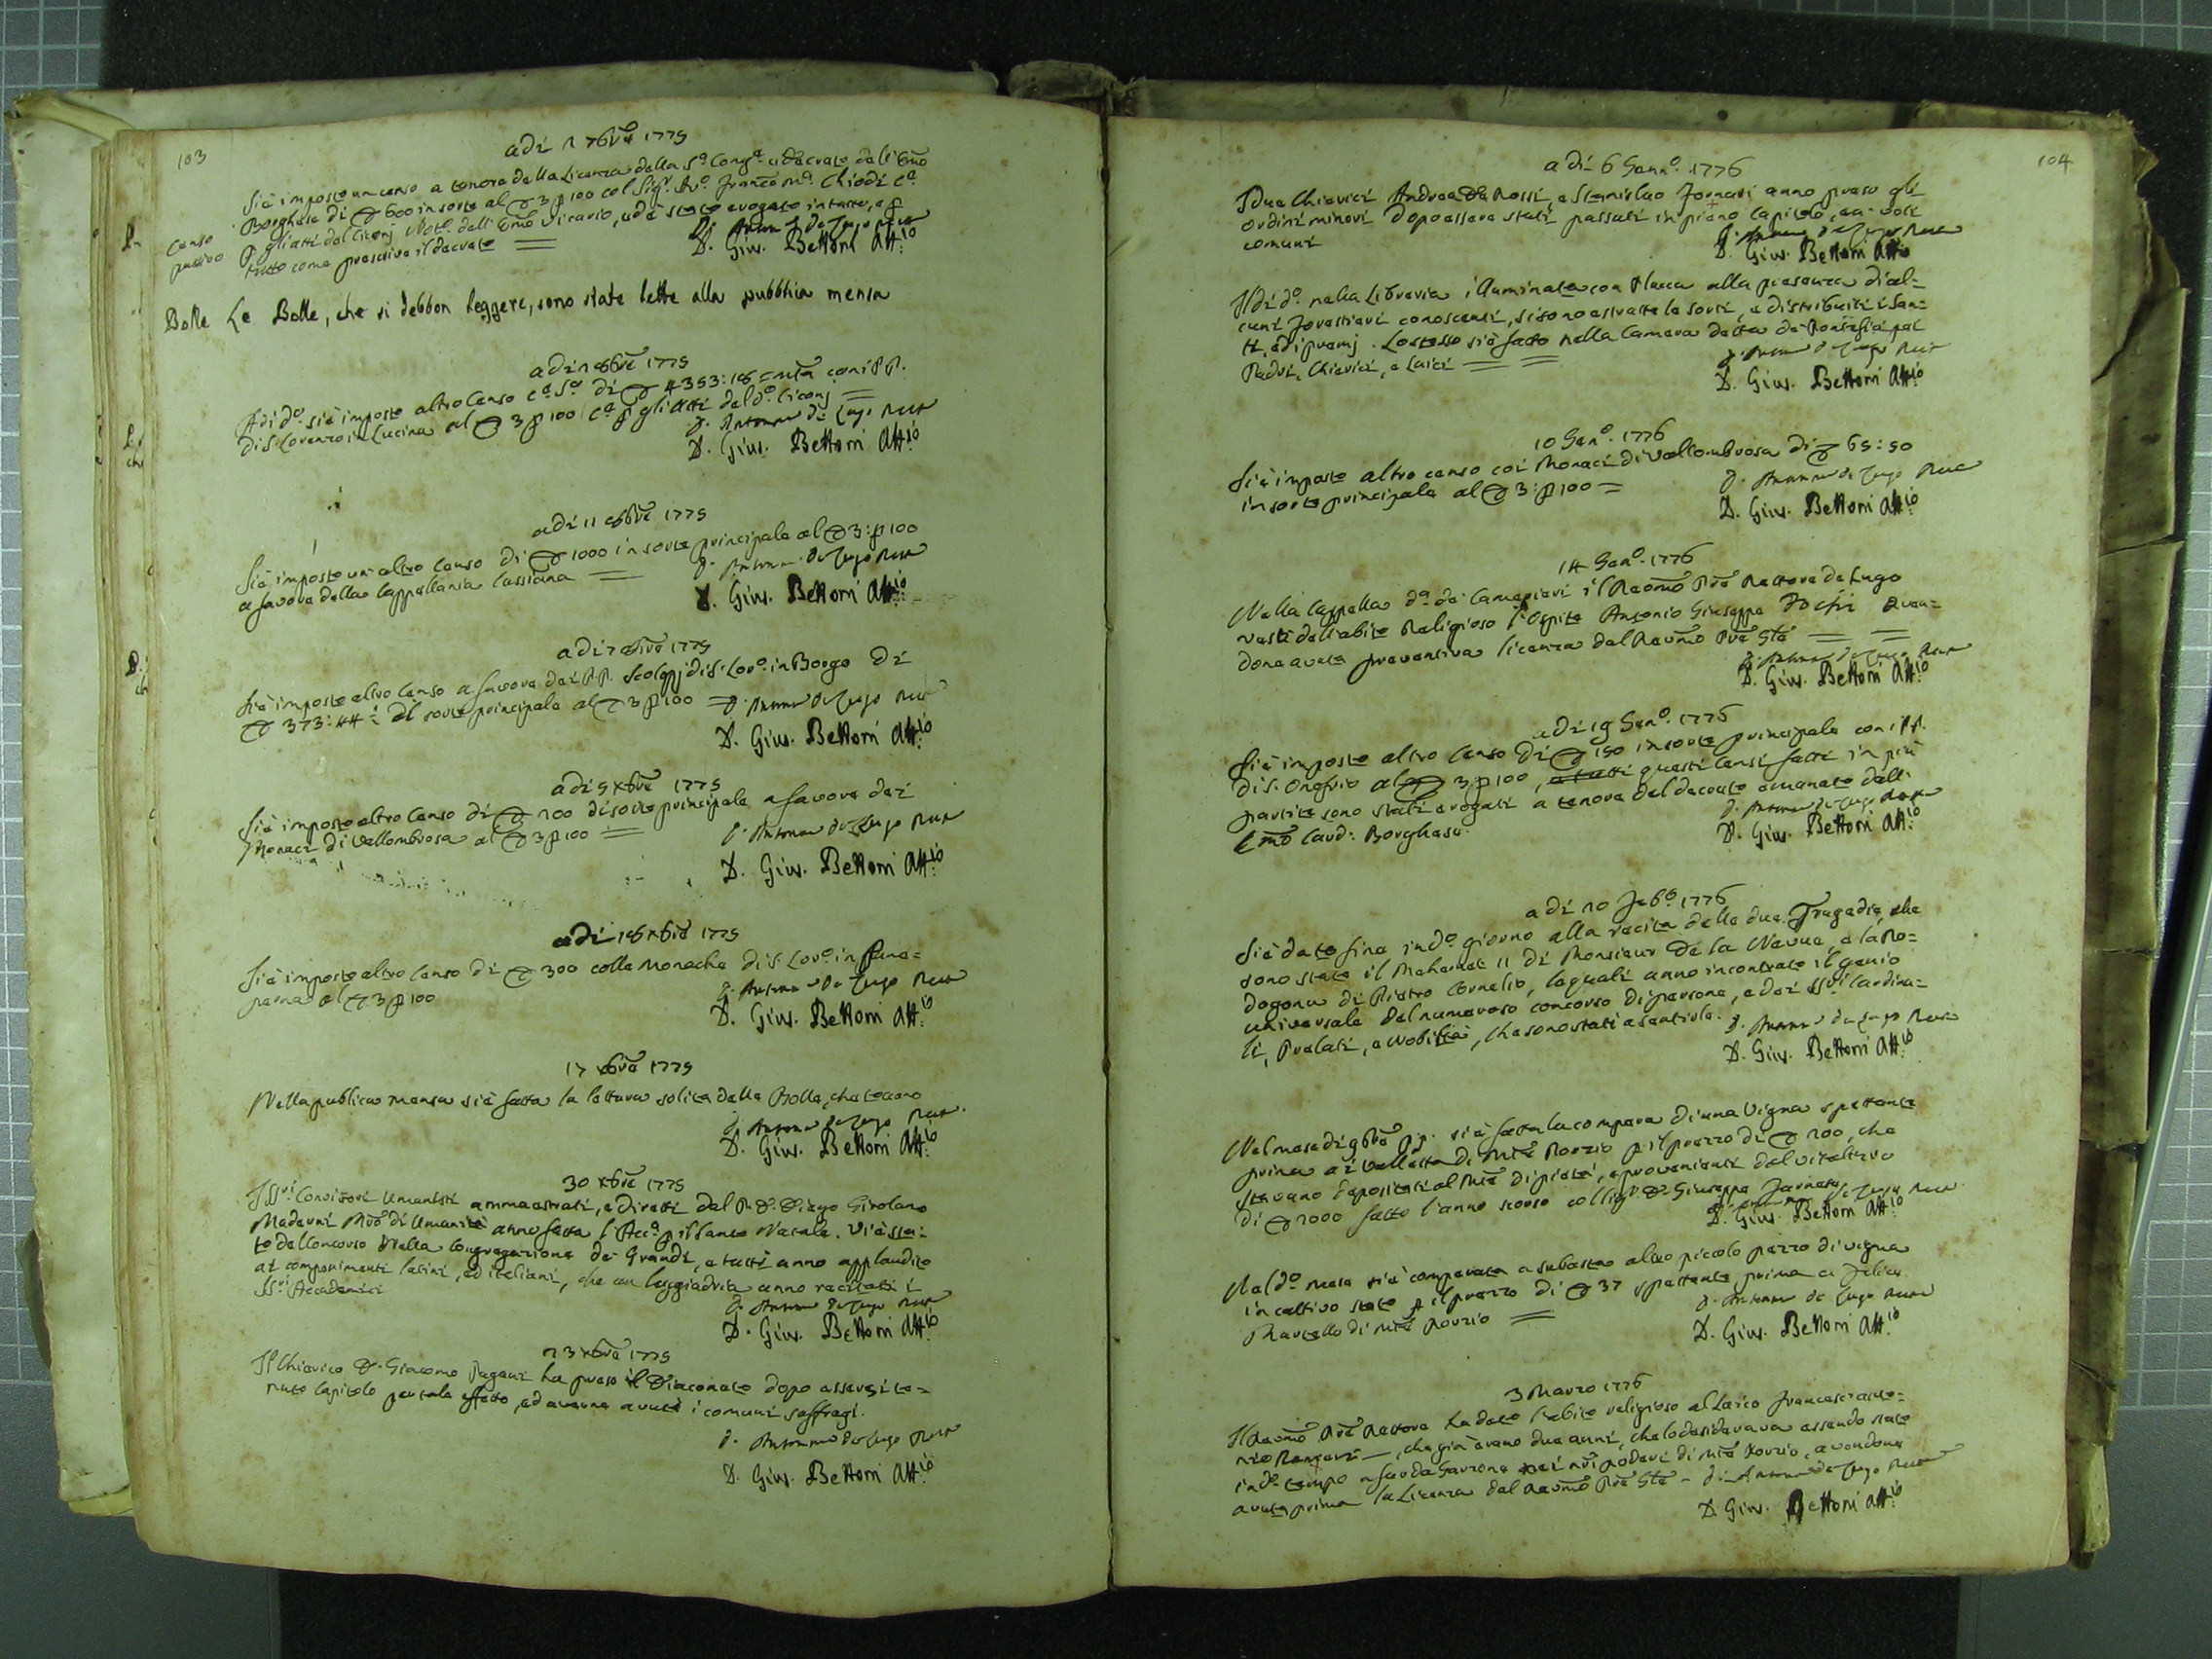 103
adi 2 7bre 1775
Si è imposto un censo a tenore della Licenza della Sa. Conge. e decreto dell'Emo
Censo Borghese di 600 in sorte al 3 p 100 col Sigr. Franco Ma. Chiodi
passivo p gli atti del Liconj Noto. dell'Emo Vicario, ed è stato erogato in tutto, e p
tutto come prescrive il decreto
D. Giu. Bettoni Attio
Bolle Le Bolle, che si debbon leggere, sono state lette alla pubblia mensa
adi 2 8bre 1775
Adi do. si è imposto altro Censo di 4353:18 con i PP.
di S. Lorenzo in Lucina al 3 p 100 p gli Atti del do. Liconj
D. Antonio de Lugo Rett
D. Giu. Bettoni Attio
adi 11 8bre 1775
Si è imposto un altro Censo di 1000 in sorte principale al 3: p 100
a favore della Cappellania Cassiana
D. Antonio de Lugo Rett
D. Giu. Bettoni Attio
adi 7 1775
Si è imposto altro Censo a favore dei PP. Scolopj di S. Loro. in Borgo di
373:44: di sorte principale al 3 p 100
D. Antonio de Lugo Rett
D. Giu. Bettoni Attio
adi 5 Xbre 1775
Si è imposto altro Censo di 200 di sorte principale a favore dei
Monaci di Vallombrosa al 3 p 100
D. Antonio de Lugo Rett
D. Giu. Bettoni Attio
adi 18 Xbre 1775
Si è imposto altro Censo di 300 colle Monache di S. Loro. in Pane=
perna al 3 p 100
D. Antonio de Lugo Rett
D. Giu. Bettoni Attio
17 Xbre 1775
Nella publica mensa si è fatta la lettura solita delle Bolle, che toccano
D. Antonio de Lugo Rett
D. Giu. Bettoni Attio
30 Xbre 1775
I SSri Convitori Umanisti ammaestrati, e diretti dal P. D. Diego Girolamo
Maderni Mro di Umanità anno fatta l'Acca. p il Santo Natale. Vi è sta=
to del Concorso Nella Congregazione de Grandi, e tutti anno applaudito
ai componimenti latini, ed italiani, che con leggiadria anno recitati i
SSri Accademici
D. Antonio de Lugo Rett
D. Giu. Bettoni Attio
23 Xbre 1775
Il Chierico D. Giacomo Pagani ha preso il Diaconato dopo essersi te=
nuto Capitolo per tale effetto, ed averne avuti i comuni suffragi.
D. Antonio de Lugo Rett
D. Giu. Bettoni Attio
104
a di 6 Genno. 1776
I due Chierici Andrea De Rossi, e Stanislao Fornari anno preso gli
ordini minori dopo essere stati passati in pieno Capitolo, ea voti
comuni
D. Antonio de Lugo Rett
D. Giu. Bettoni Attio
Il di do. nella Libreria illuminata con Placca alla presenza di al=
cuni forestieri conoscenti, si sono estratte le sorti, e distribuiti i San=
ti, ed i premj. Lo stesso si è fatto nella Camera detta de Pontefici pei
Padri, Chierici, e Laici
D. Antonio de Lugo Rett
D. Giu. Bettoni Attio
10 Geno. 1776
Si è imposto altro censo coi Monaci di Vallombrosa di 65:50
in sorte principale al 3: p 100
D. Antonio de Lugo Rett
D. Giu. Bettoni Attio
14 Geno. 1776
Nella Cappella da. de Camerieri il Reomo Pre Rettore de Lugo
vestì dell'abito Religioso l'Ospite Antonio Giuseppe aven=
done avuta preventiva licenza dal Revmo Pre Gle
D. Antonio de Lugo Rett
D. Giu. Bettoni Attio
adi 19 Geno. 1776
Si è imposto altro Censo di 150 in sorte principale con i PP.
di S. Onofrio al 3 p 100, e tutti questi Censi fatti in più
partite sono stati erogati a tenore del decreto emanato dall'
Emo Card: Borghese
D. Antonio de Lugo Rett
D. Giu. Bettoni Attio
a di 20 Febo. 1776
Si è dato fine in do. giorno alla recita delle due Tragedie, che
sono state il Mahemet II di Monsieur De la Neuve, e la Ro=
dogona di Pietro Cornelio, le quali anno incontrato il genio
universale del numeroso concorso di persone, e dei SSri Cardina=
li, Prelati, e Nobiltà, che sono stati a sentirle.
D. Antonio de Lugo Rett
D. Giu. Bettoni Attio
Nel mese di 9bre p.p. si è fatta la compera di una Vigna spettante
prima ai Valletta di Mte Porzio p il prezzo di 200, che
stavano depositati al Mte di pietà, e provenienti dal vitalizio
di 2000 fatto l'anno scorso col Sigr D. Giuseppe
D. Antonio de Lugo Rett
D. Giu. Bettoni Attio
Nel do. mese si è comperata a subasta altro piccolo pezzo di vigna
in cattivo stato p il prezzo di 37 spettante prima a Felice
Martello di Mte Porzio
D. Antonio de Lugo Rett
D. Giu. Bettoni Attio
3 Marzo 1776
Il Reomo Pre Rettore ha dato l'abito religioso al Laico Francesc'Anto=
nio, che già erano due anni, che lo desiderava essendo stato
in do. tempo a far da Garzone nei nri poderi di Mte Porzio, avendone
avuta prima la Licenza dal Reomo Pre Gle
D. Antonio de Lugo Rett
D. Giu. Bettoni Attio